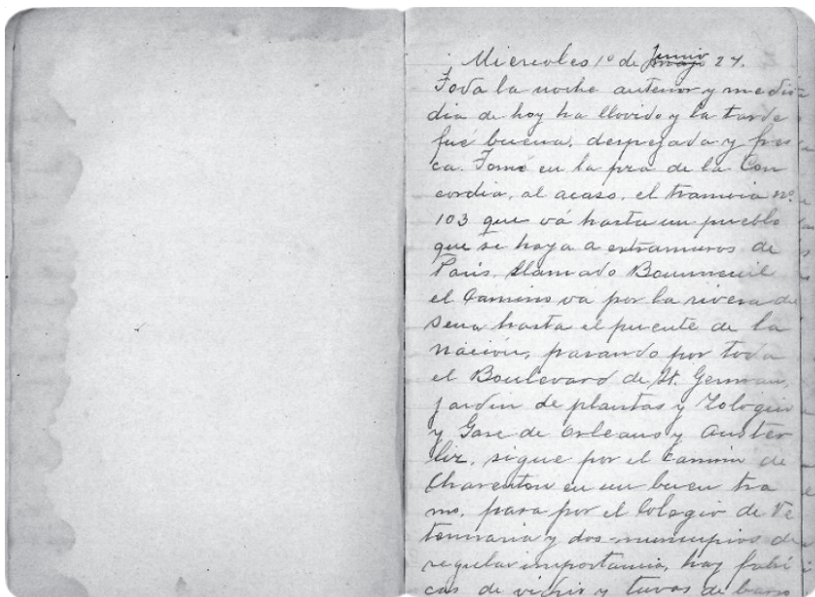 Miercoles 1º de Junio 27.
Toda la noche anterior y medio
dia de hoy ha llovido y la tarde
fué buena, despejada y fres
ca. Tomé en la pza de la Con
cordia, al acaso, el tramvia nº
103 que vá hasta un pueblo
que se haya a extramuros de
Paris, llamado Bounneuil
el camino va por la rivera de
Sena hasta el puente de la
nación, pasando por todo
el Boulevard de St. German,
jardin de plantas y Zologia
y Gare de Orleans y Auster
liz, sigue por el camino de
Charenton en un buen tra
mo, pasa por el Colegio de Ve
terinaria y dos municipios de
regular importancia, hay fabri
cas de vidrio y tuvos de barro